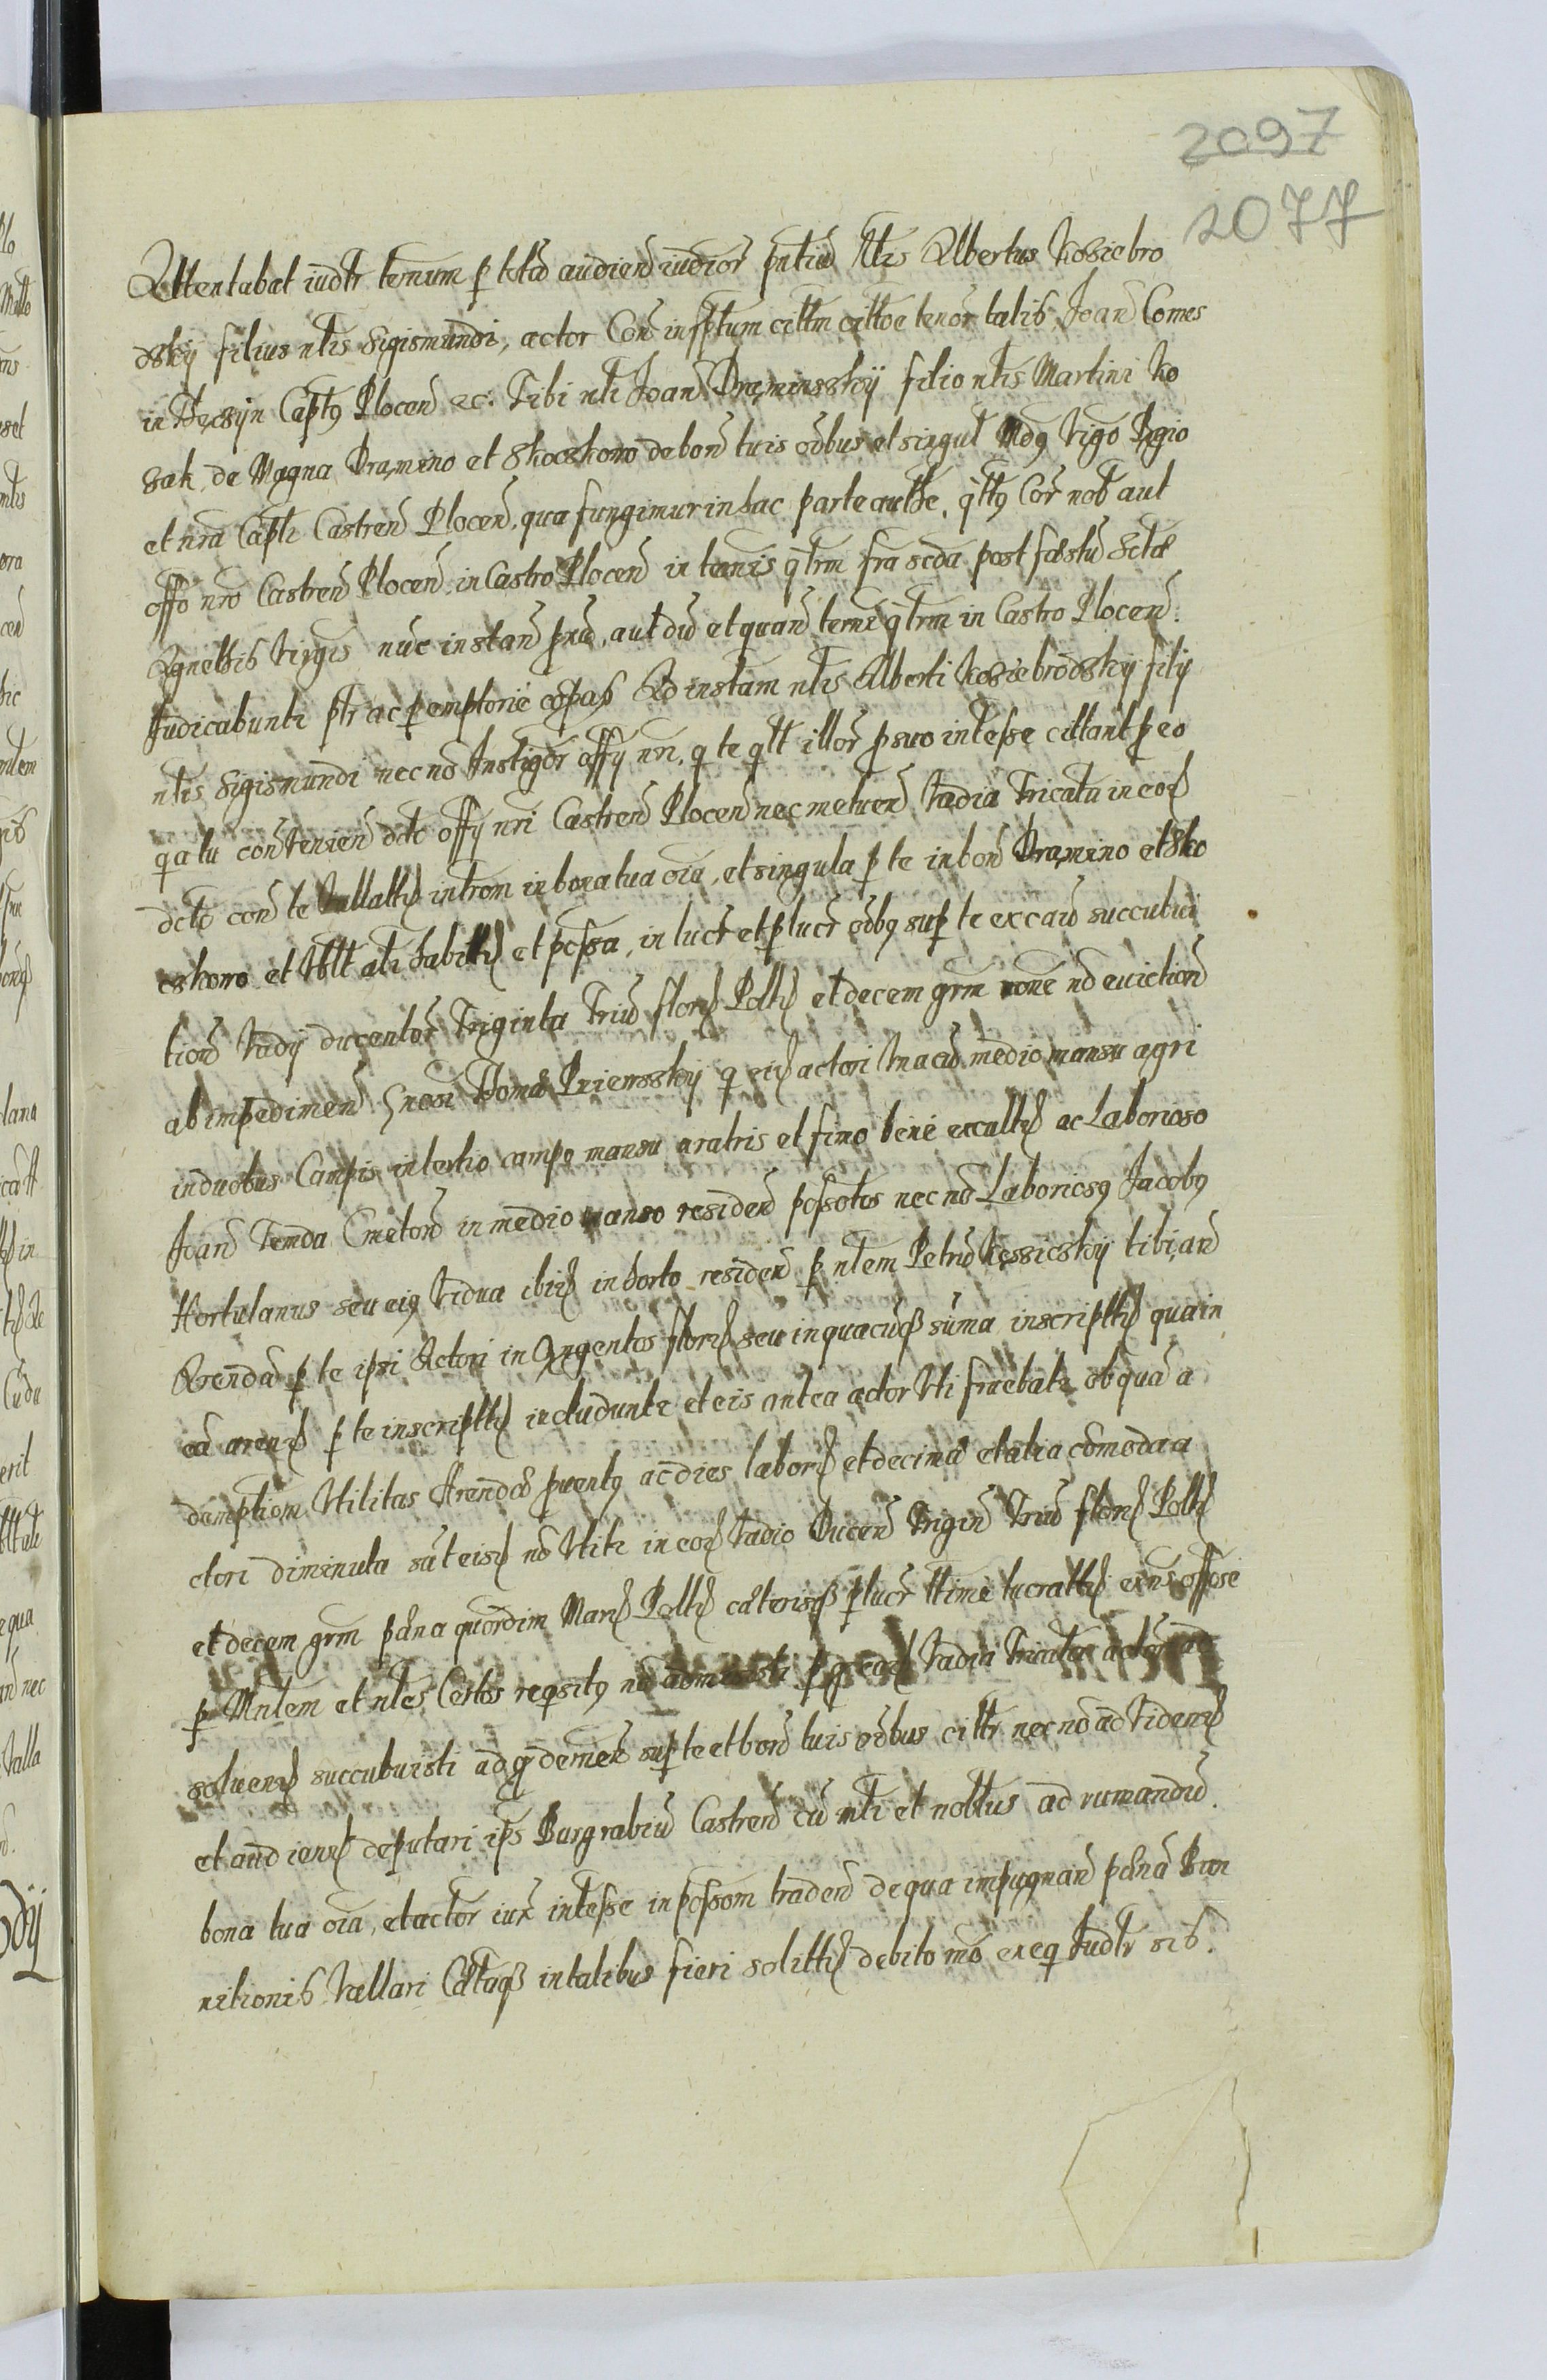 2097
2077
Attentabat iudtr ternum p totā audien̄ iudior̄ pn̄tiū Nłis Albertus Kosiebro
dskij filius nłis Sigismundi, actor Con̄ infptum cittm cittōe tenor talis Joan̄ Comes
in Thęczijn Capts Plocen̄ ec. Tibi nłi Joan̄ Dramensskij filio nłis Martini Ko
sak de Magna Dramino et Skoczkowo de bon̄ tuis oībus et singul Mdo Vigo Rgio
et nr̄a Capłi Castren̄ Plocen̄, qua fungimur in hac parte autħe, qtts Cor̄ nob̄ aut
offo nr̄o Castren̄ Plocen̄ in Castro Plocen̄ in termis qtrm fra scda post fæstū Sctæ
Agnethis Virgis nūc instan̄ prū, aut dū et quan̄ terni qtrm in Castro Plocen̄
Judicabuntr ptr ac pemptorie cōpas Ad instam nłis Alberti Kosiebrodskij filij
nłis Sigismundi nec nō Instigor̄ offij nr̄i, q te qtt illor̄ p suo intesse cittant p eo
q a tu conveniēn dcto offij nr̄i Castren̄ Plocen̄ nec metuen̄ Vadia Tricatu in eor
dcto con̄ te Vallatt introm in bona tua oīa, et singula p te in bon̄ Dramino et Sko
czkowo et Vbłt ałi habitt et possa, in lucr̄ et plucr̄ oībus sup te ex caū succubui
tion̄ Vadij ducentor̄ Triginta Triū flor Poltt et decem grm rone nō eviction̄
ab impedimen̄ Gnosi Thomæ Prienskij q eid actori Una cū medio mansu agri
in duobus Campis in tertio campo mansu aratris et fimo bene excultt ac Laborioso
Joan̄ Temda Cmeton̄ in medio manso residen̄ possotos nec nō Laboriosus Jacobus
Hortulanus seu eius Vidua ibid in horto residen̄ p nłem Petrū Kęssicskij tibi, an̄
Arenda p te ipsi Actori in Qngentos flor seu in quacūq suma inscriptt qua in
eā aren p te inscriptt includuntr et eis antea actor Vti fruebatr ob quā a
demption̄ Vtilitas Arendæ pventus ac dies labor et decimæ et alia cōmoda a
ctori diminuta sūt eisd nō Vtitr in eor Vadio Ducen̄ Trigin̄ Triū flor Poltt
et decem grm pœna quordim Mar Poltt cæterisq plucr̄ ttime lucratt ex ns offose
p Mntem et nłes Certos reqsitus nō admisisti p q eadem Vadia Tricata actori nō
soluen succubuisti ad q̄demen̄ sup te et bon̄ tuis oībus cittr nec nō ad Viden
et audien deputari ips Burgrabiū Castren̄ cū nłi et nobłus ad rumandū
bona tua oīa, et actor̄ iur intesse in possom traden̄ de qua impugnan̄ pœnā Ban
nitionis Vallari Cætaq in talibus fieri solitt debito mō exeq Judtr sib.